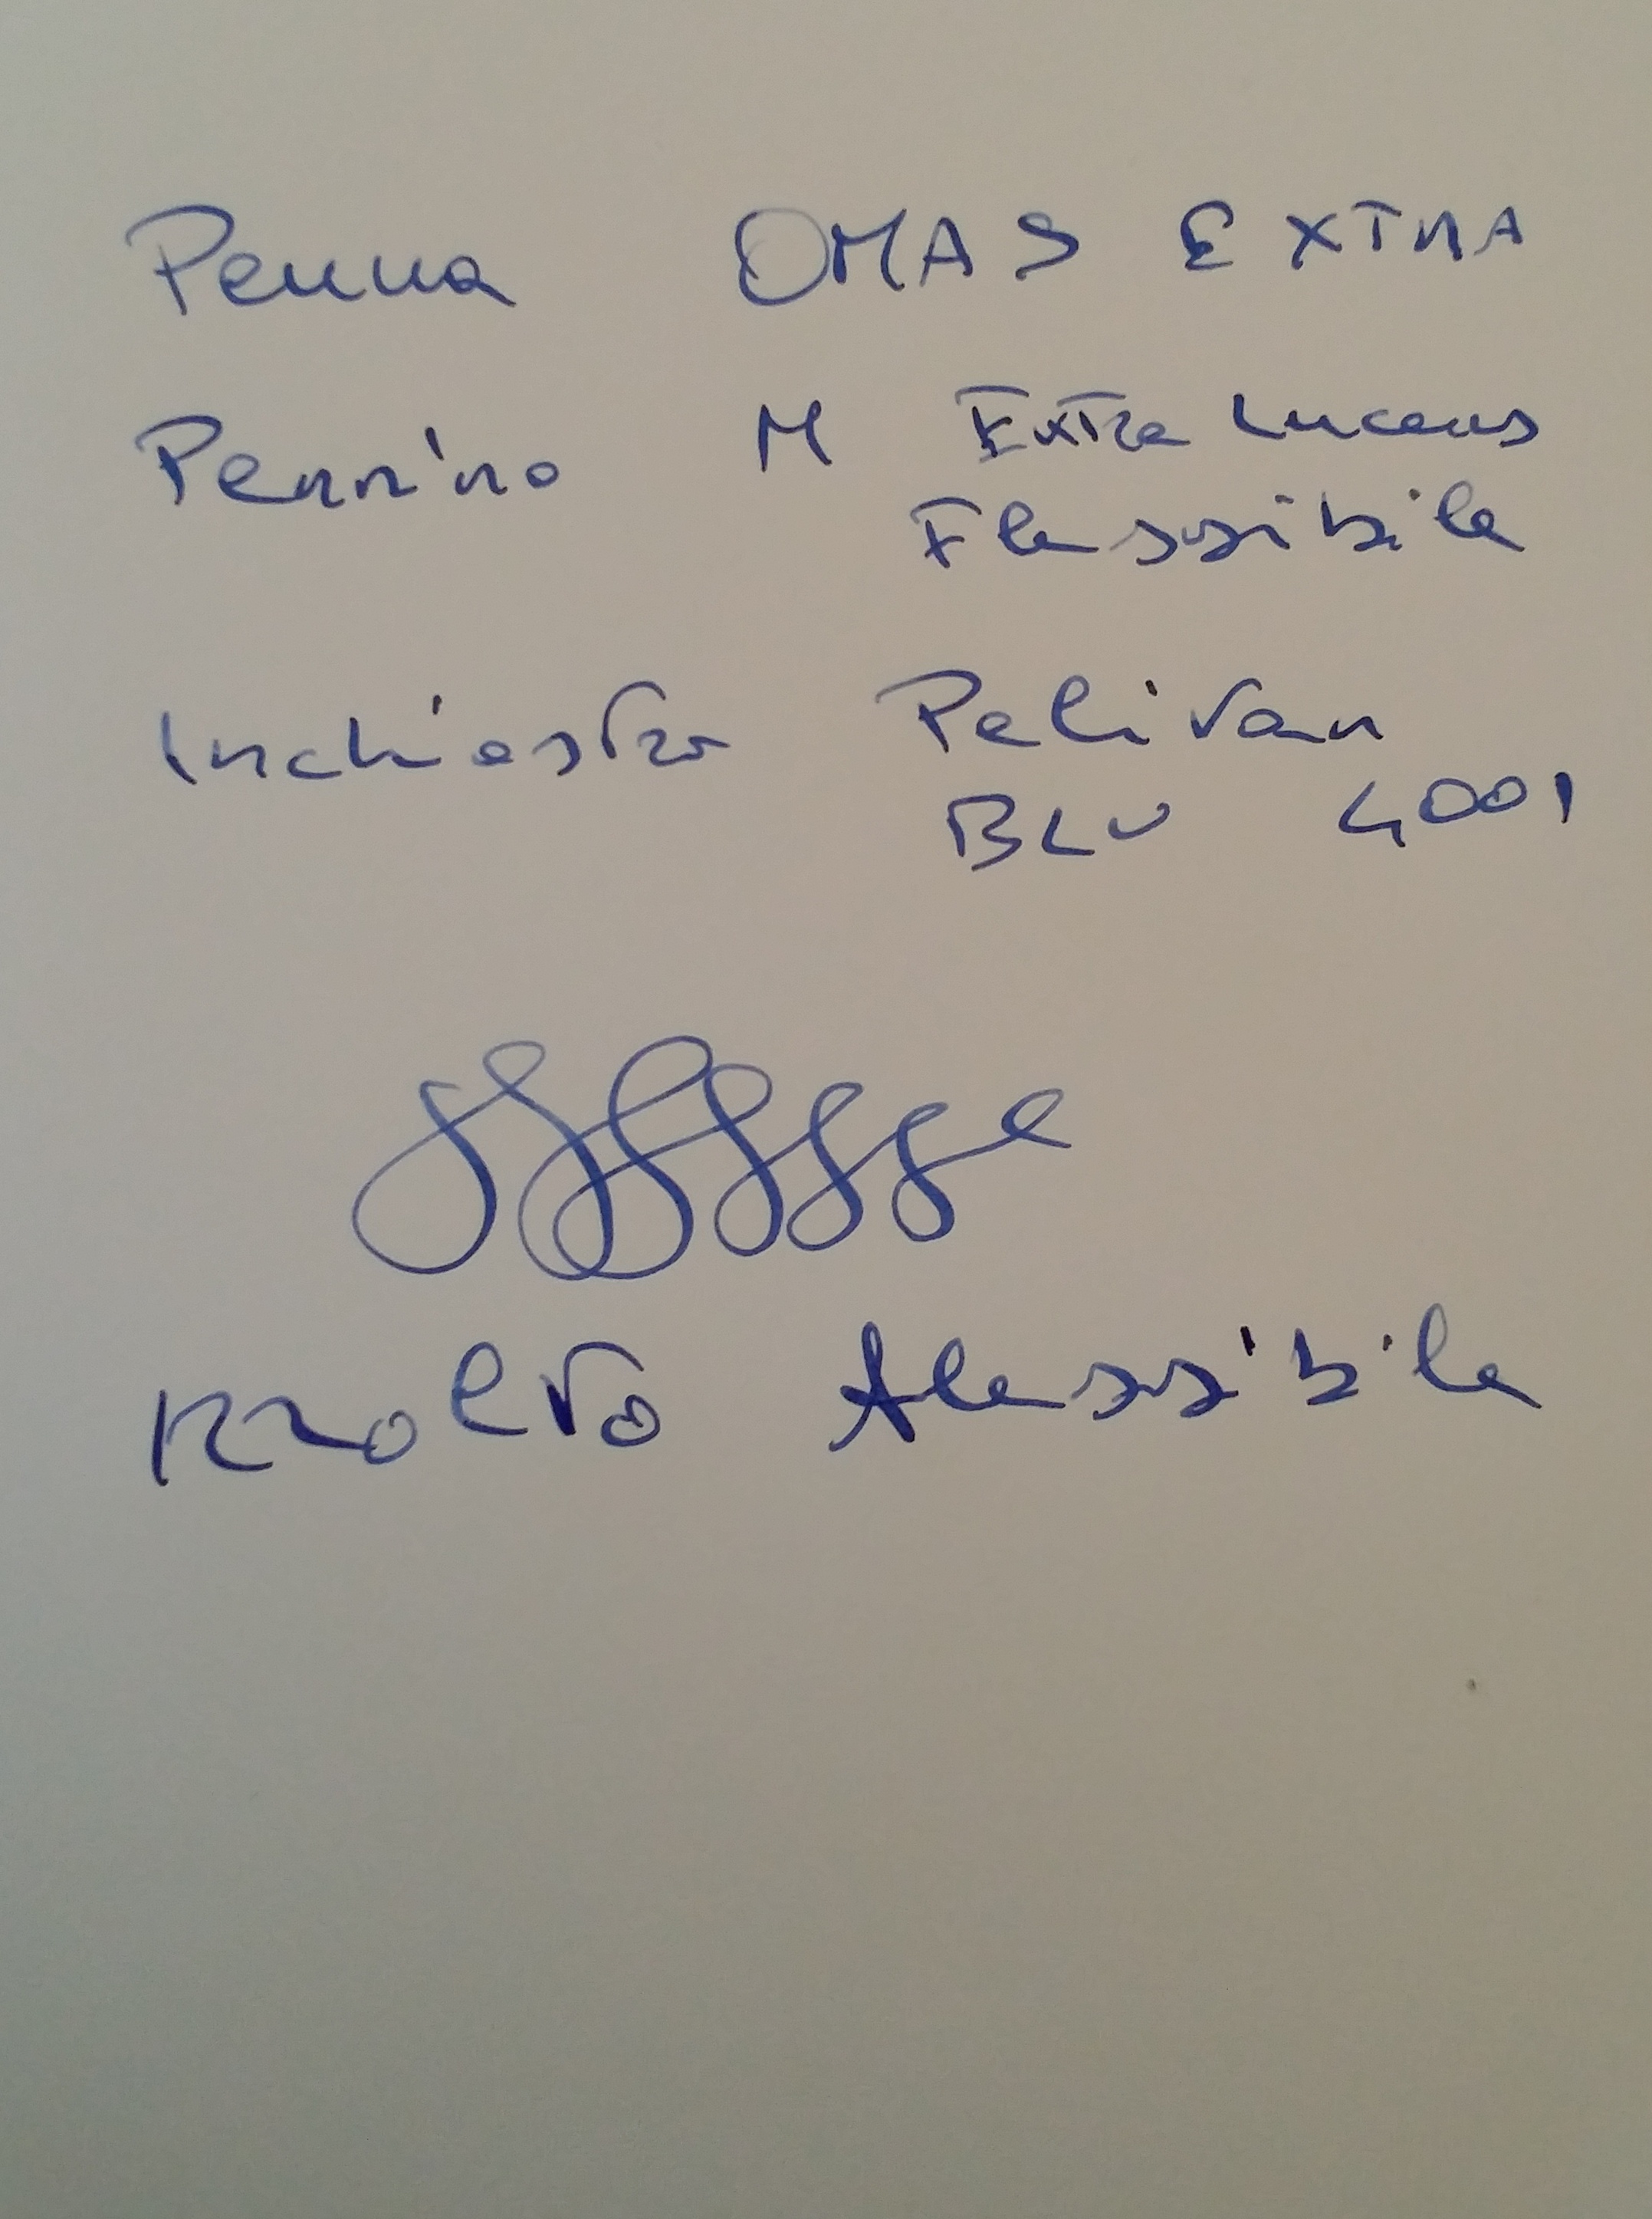 Penna OMAS EXTRA
Pennino M Extra Lucens
Flessibile
Inchiostro Pelikan
BLU 4001
Molto flessibile